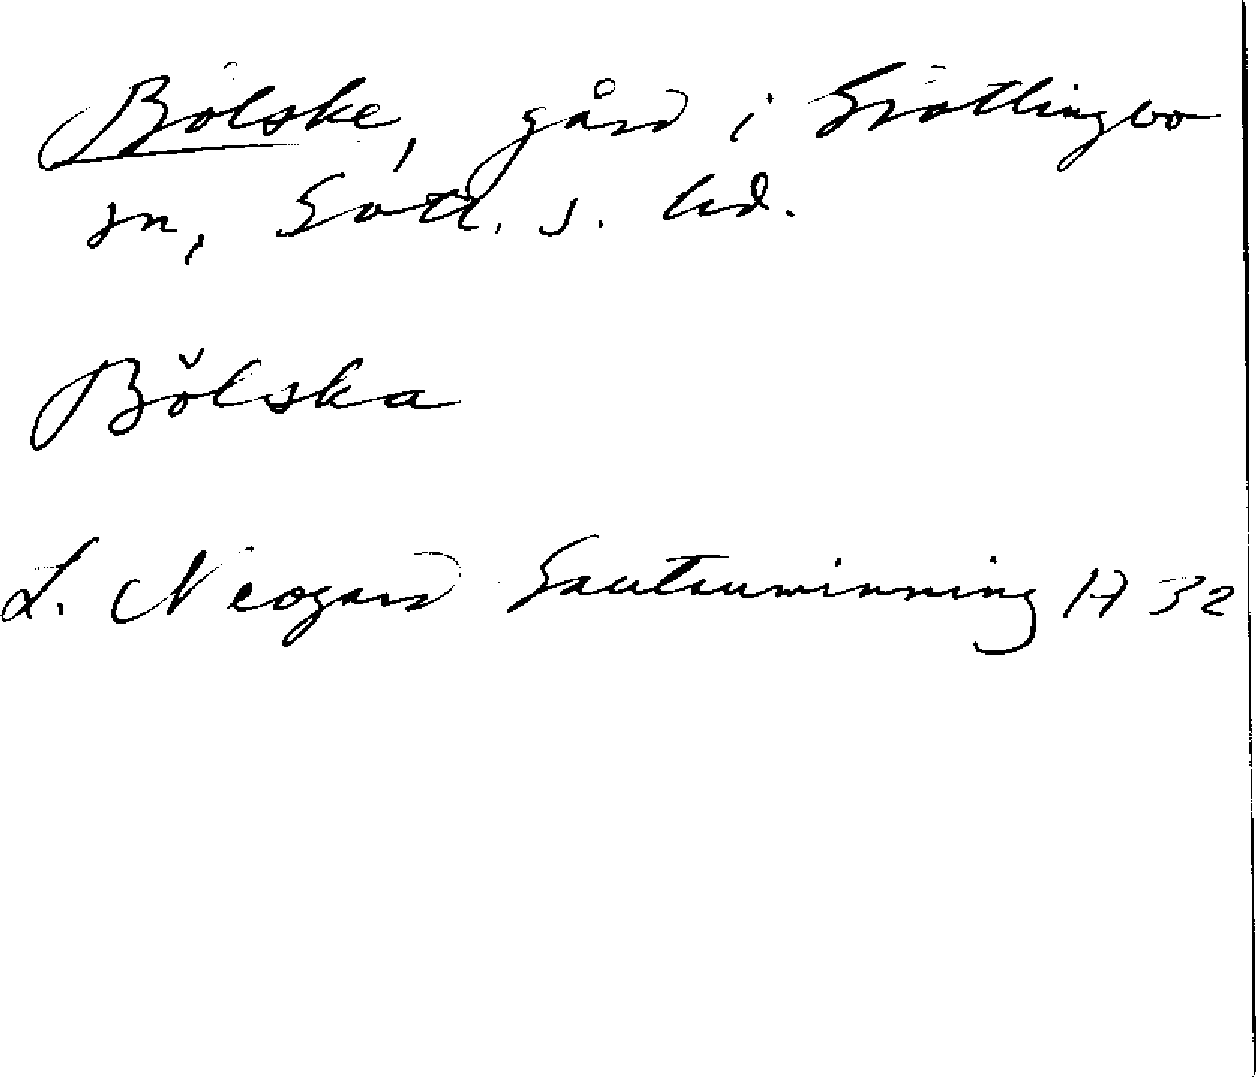 Bölske, gård i Grötlingbo
sn, Gotl. s. hd.
Bölska
L. Neogard Gautauminning A 32